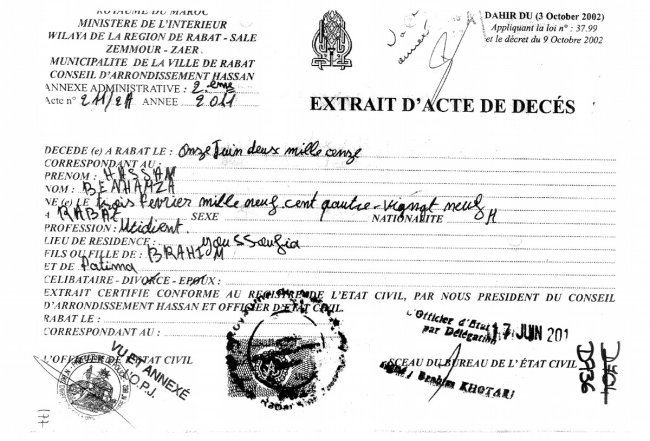 ROYAUME DU MAROC
MINISTERE DE L'INTERIEUR
WILAYA DE LA REGION DE RABAT - SALE
ZEMMOUR - ZAER
MUNICIPALITE DE LA VILLE DE RABAT
CONSEIL D'ARRONDISSEMENT HASSAN
ANNEXE ADMINISTRATIVE : 2.eme
Acte n° ANNEE 2011
DAHIR DU (3 October 2002)
Appliquant la loi n° : 37.99
et le décret du 9 Octobre 2002
EXTRAIT D'ACTE DE DECÉS
DECEDE (e) A RABAT LE : onze Juin deux mille onze
CORRESPONDANT AU :
PRENOM : HASSAN
NOM : BENHAMZA
NE (e) LE trois février mille neuf cent quatre-vignat neuf
A RABAT SEXE NATIONALITE M
PROFESSION :
LIEU DE RESIDENCE : youssoufia
FILS OU FILLE DE : BRAHIM
ET DE Fatima
CELIBATAIRE - DIVORCE - EPOUX :
EXTRAIT CERTIFIE CONFORME AU REGISTRE DE L'ETAT CIVIL, PAR NOUS PRESIDENT DU CONSEIL
D'ARRONDISSEMENT HASSAN ET OFFICIER D'ETAT CIVIL.
RABAT LE :
CORRESPONDANT AU :
L'Officier d'Etat
par Délégation
17 JUIN 201
L'OFFICIER DE L'ETAT CIVIL
SCEAU DU BUREAU DE L'ÉTAT CIVIL
VU ET ANNEXÉ
L'O.P.J.
Signé : Brahim KHOTARI
D936